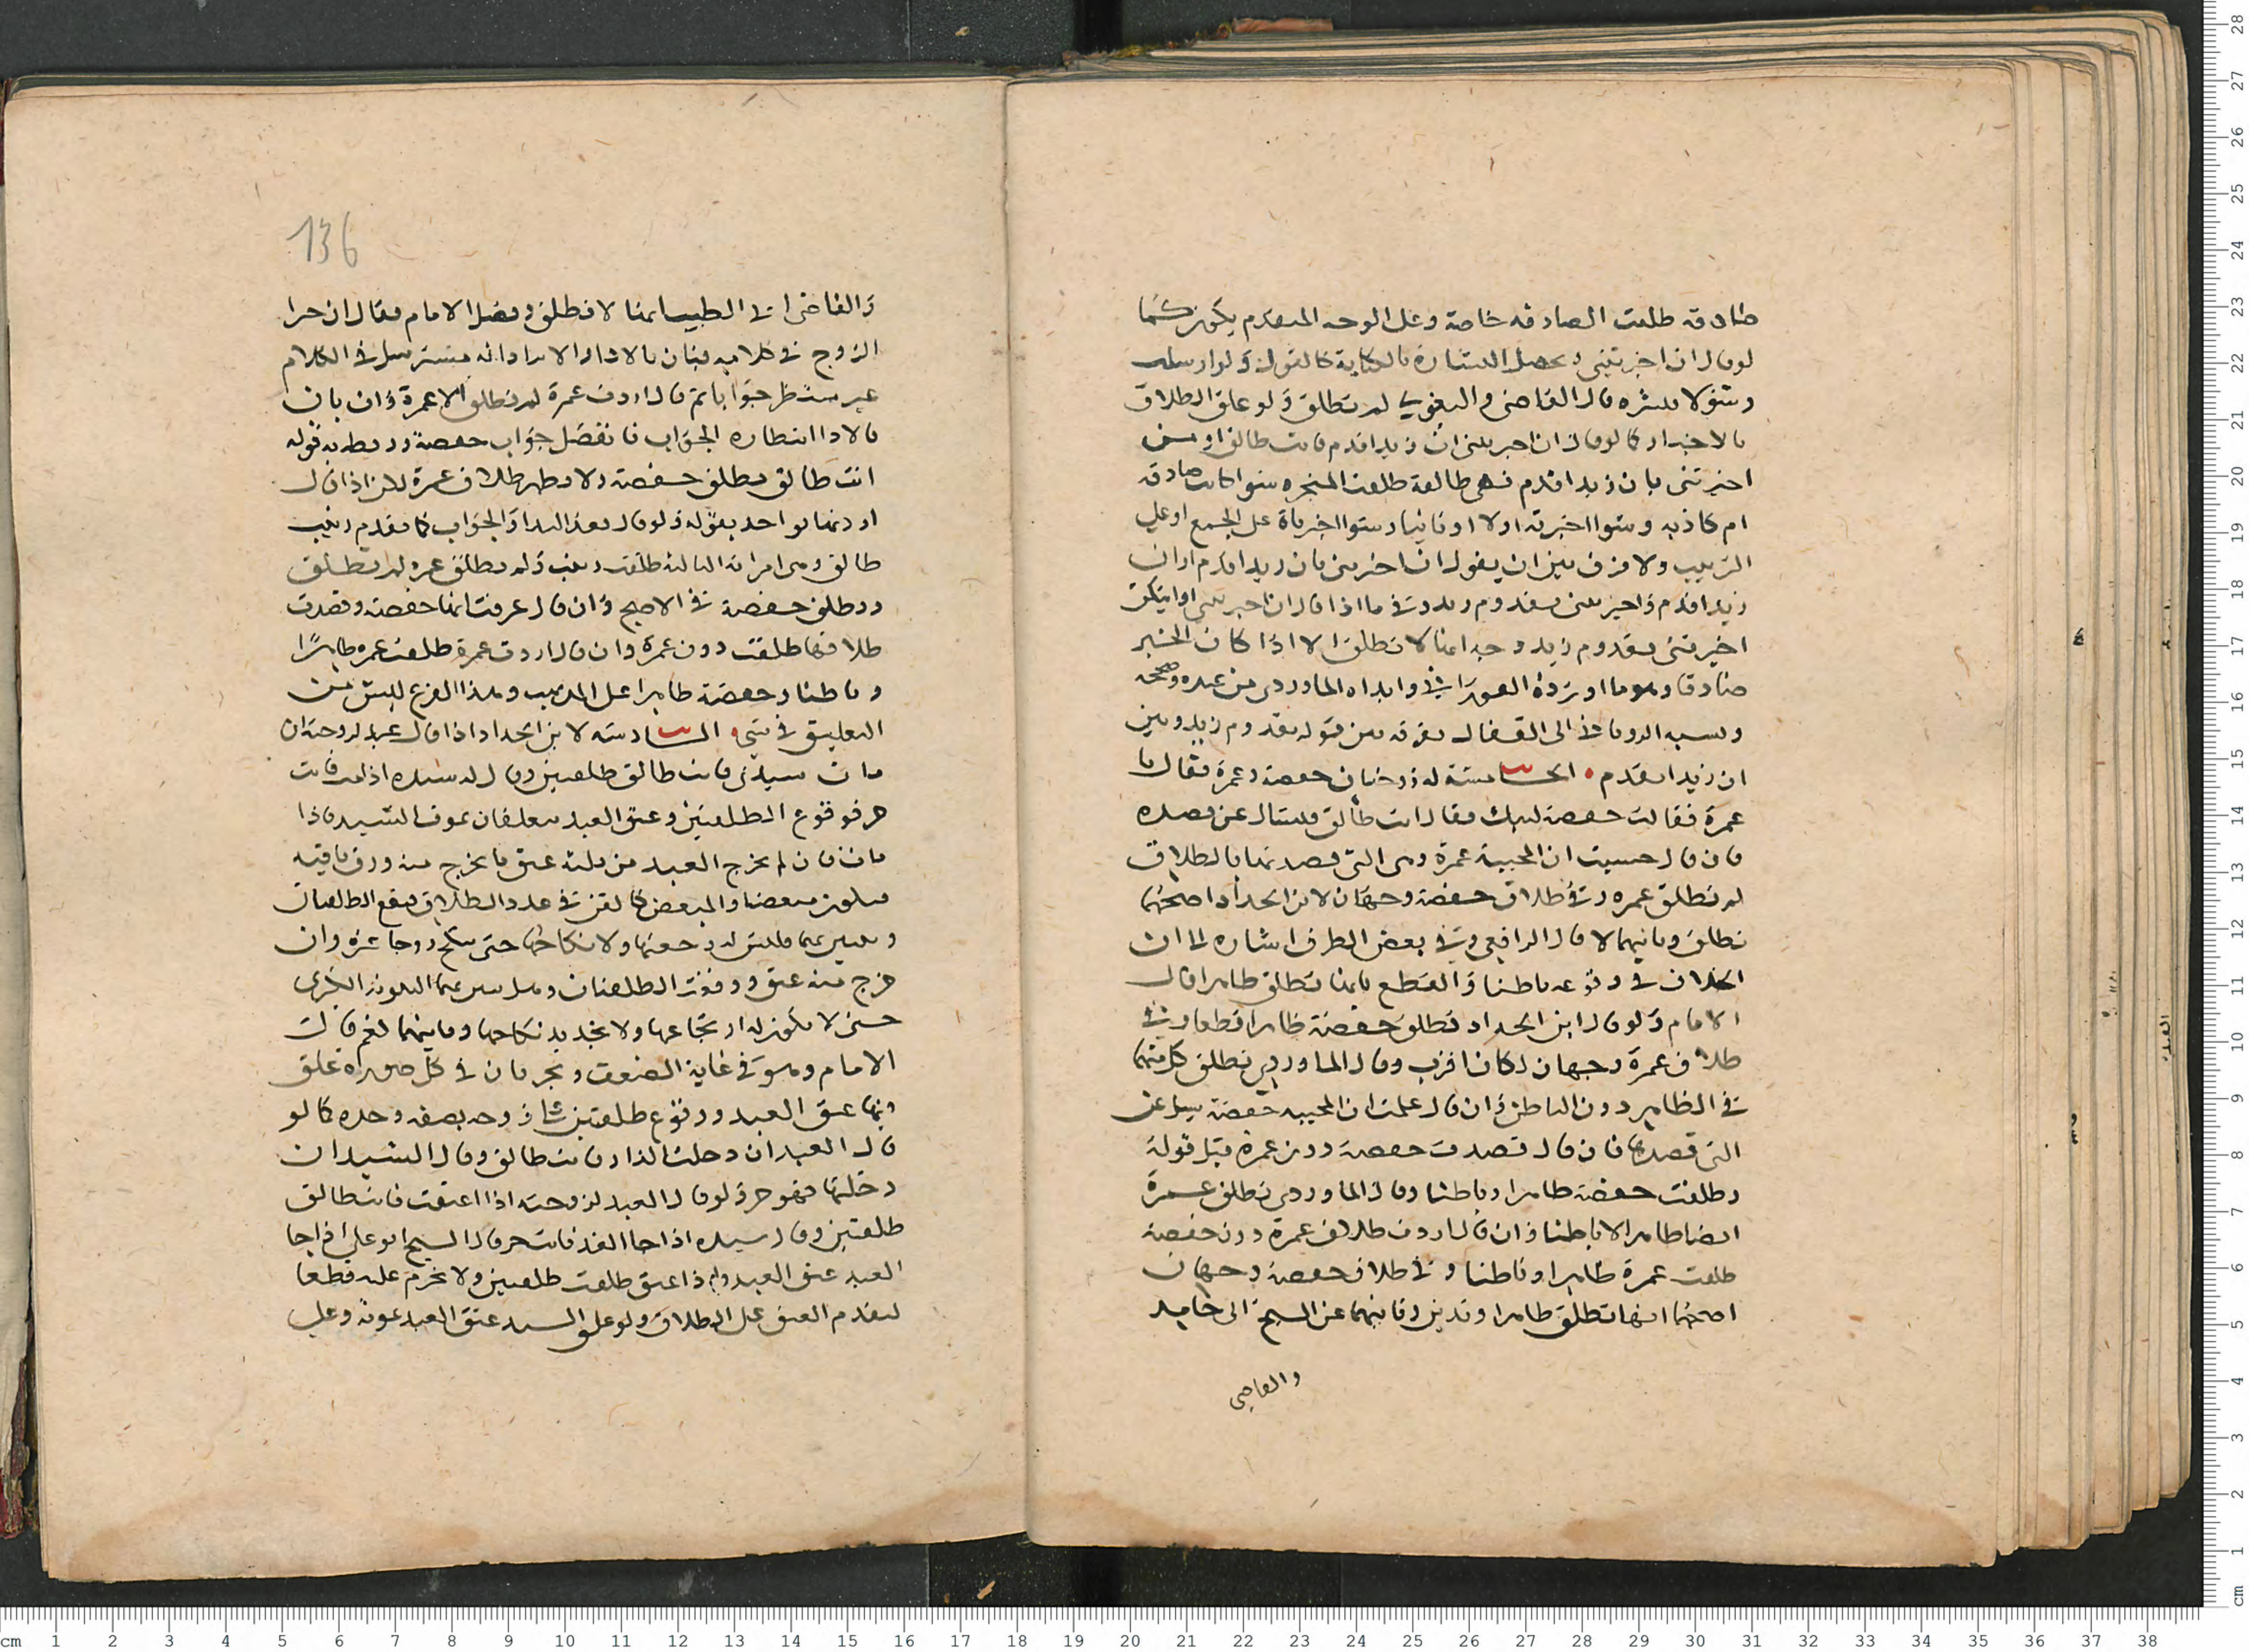 صادقة طلقت الصادقة خاصة وعلى الوجه المتقدم يكون كما
لو قال ان اخبرتنى وتحصل البشارة بالكتابة كالقول ولو ارسلت
رسولا يبشره قال القاضى والبغوي لم تطلق ولو علق الطلاق
بالاخبار كما لو قال ان اخبرتنى ان زيدا قدم فانت طالق او من
اخبرتنى بان زيدا قدم فهى طالقة طلقت المخبره سوا كانت صادقه
ام كاذبه وسوا اخبرته اولا او ثانيا وسوا اخبرتاه على الجمع او على
الترتيب ولا فرق بين ان يقول ان اخبرتنى بان زيدا قدم او ان
زيدا قدم واخبرتنى بقدوم زيد وفى ما اذا قال ان اخبرتنى او ايتكن
اخبرتنى بقدوم زيد وجه انها لا تطلق الا اذا كان الخبر
صادقا وهو ما اورده الفورانى وابداه الماوردى من عنده وصححه
ونسبه الرويانى الى القفال بفرقه بين قوله بقدوم زيد وبين
ان زيدا قدم • الخامسة له زوجتان حفصة وعمرة فقال يا
عمرة فقالت حفصة لبيك فقال انت طالق فيسال عن قصده
فان قال حسبت ان المجيبة عمرة وهى التى قصدتها بالطلاق
لم تطلق عمره وفى طلاق حفصة وجهان لابن الحداد اصحهما
تطلق وثانيهما لا قال الرافعى وفى بعض الطرق اشاره الى ان
الخلاف فى وقوعه باطنا والقطع بانها تطلق ظاهرا قال
الامام ولو قال ابن الحداد تطلق حفصة ظاهرا قطعا وفى
طلاق عمرة وجهان لكان اقرب وقال الماوردى تطلق كل منهما
فى الظاهر دون الباطن وان قال علمت ان المجيبه حفصة سيل عن
التى قصدها فان قال قصدت حفصة دون عمرة قبل قوله
وطلقت حفصة ظاهرا وباطنا وقال الماوردى تطلق عمرة
ايضا ظاهرا لا باطنا وان قال اردت طلاق عمرة دون حفصة
طلقت عمرة ظاهرا وباطنا وفى طلاق حفصة وجهان
اصحهما انها تطلق ظاهرا وتدين وثانيهما عن الشيخ ابى حامد
والقاضى
136
والقاضى ابى الطيب انها لا تطلق وفصل الامام فقال ان جرا
الزوج فى كلامه فبان بالاداء انه مسترسل فى الكلام
غير منتظر جوابا ثم قال اردت عمرة لم تطلق الا عمرة وان بان
بالاداء انتظاره الجواب فاتصل جواب حفصة وربط به قوله
انت طالق تطلق حفصة ولا يظهر طلاق عمرة لان اذا قال
اردتها يواخذ بقوله ولو قال بعد الندا والجواب كما تقدم زينب
طالق وهى امراته الثالثة طلقت زينب ولم تطلق عمره ولم تطلق
وتطلق حفصة فى الاصح وان قال عرفت انها حفصة وقصدت
طلاقها طلقت دون عمرة وان قال اردت عمرة طلقت عمره ظاهرا
وباطنا وحفصة ظاهرا على المذهب وهذا الفرع ليس من
التعليق فى شى • السادسه لابن الحداد اذا قال عبد لزوجته ان
مات سيدى فانت طالق طلقتين وقال له سيده اذا مت فانت
حر فوقوع الطلقتين وعتق العبد معلقان بموت السيد فاذا
مات فان لم يخرج العبد من ثلثه عتق ما يخرج منه ورق باقيه
فيكون مبعضا والمبعض كالقن فى عدد الطلاق فتقع الطلقتان
وتبين منه فليس له رجعتها ولا نكاحها حتى تنكح زوجا غيره وان
خرج منه عتق ووقعت الطلقتان وهل تبين منه البينونة الكبرى
حتى لا يكون له ارتجاعها ولا تجديد نكاحها وثانيهما نعم قال
الامام وهو فى غاية الضعف ويجريان فى كل صوره علق
فيها عتق العبد ووقوع طلقتين على زوجه بصفه وحده كما لو
قال العبد ان دخلت الدار فانت طالق وقال السيد ان
دخلتها فهو حر ولو قال العبد لزوجته اذا اعتقت فانت طالق
طلقتين وقال سيده اذا جا الغد فانت حر قال الشيخ ابو على اذا جا
الغد عتق العبد واذا عتق طلقت طلقتين ولا تحرم عليه قطعا
لتقدم العتق على الطلاق ولو علق السيد عتق العبد بموته وعلى